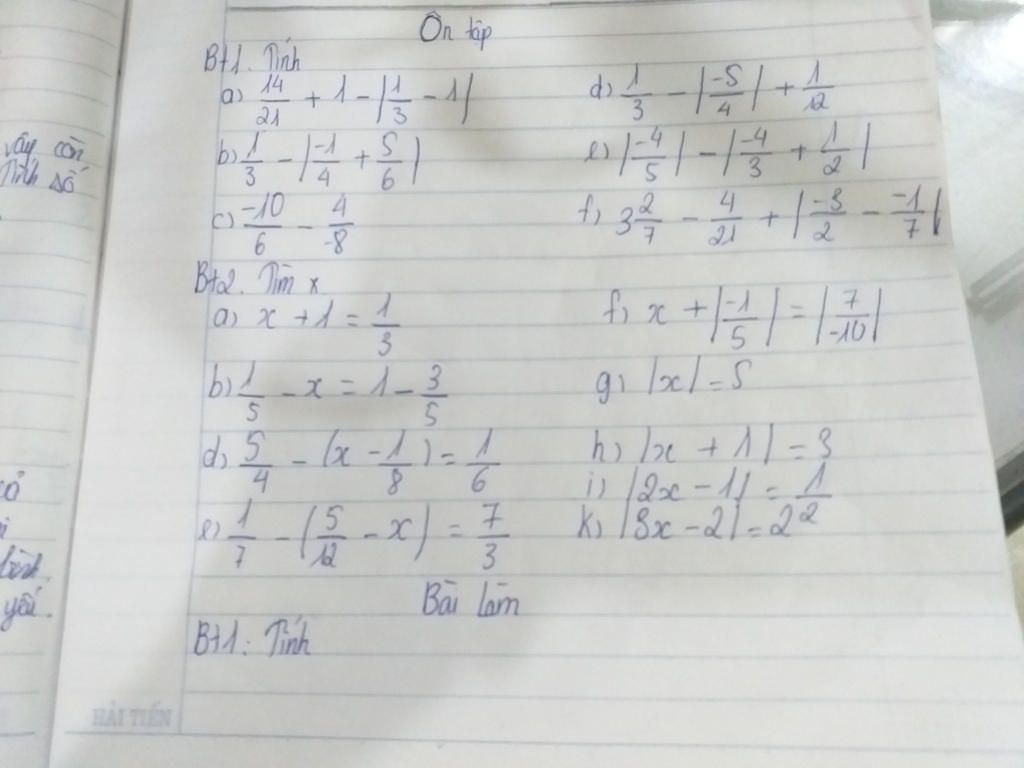 Ôn tập
Bt1. Tính
a) 14/21 + 1 - |1/3 - 1|
d) 1/3 - |-5/4| + 1/12
b) 1/3 - |-1/4 + 5/6|
e) |-4/5| - |-4/3 + 1/2|
c) -10/6 - 4/-8
f) 3 2/7 - 4/21 + |-3/2 - -1/7|
Bt2. Tìm x
a) x + 1 = 1/3
f) x + |-1/5| = |7/-10|
b) 1/5 - x = 1 - 3/5
g) |x| = 5
d) 5/4 - (x - 1/8) = 1/6
h) |x + 1| = 3
i) |2x - 1| = 1/2
e) 1/7 - (5/12 - x) = 7/3
k) |3x - 2| = 2
Bài làm
Bt1: Tính
vậy còn
Tính số
yếu.
HẢI TIẾN